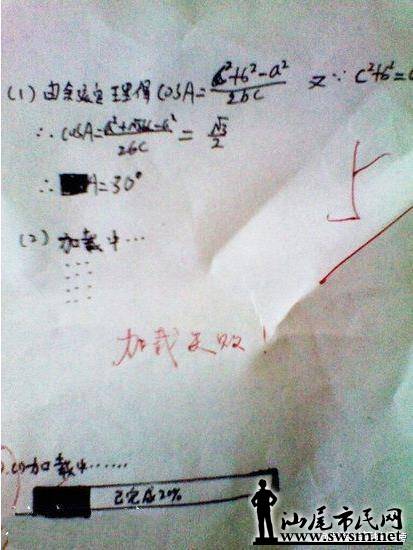 (1) 由余弦定理得 COSA= c²+b²-a² / 2bc 又∵ c²+b²=
∴ COSA= a²+√3bc-a² / 2bc = √3/2
∴ A=30°
5
(2) 加载中…
加载失败!
(1)加载中……
已完成20%
汕尾市民网
www.swsm.net